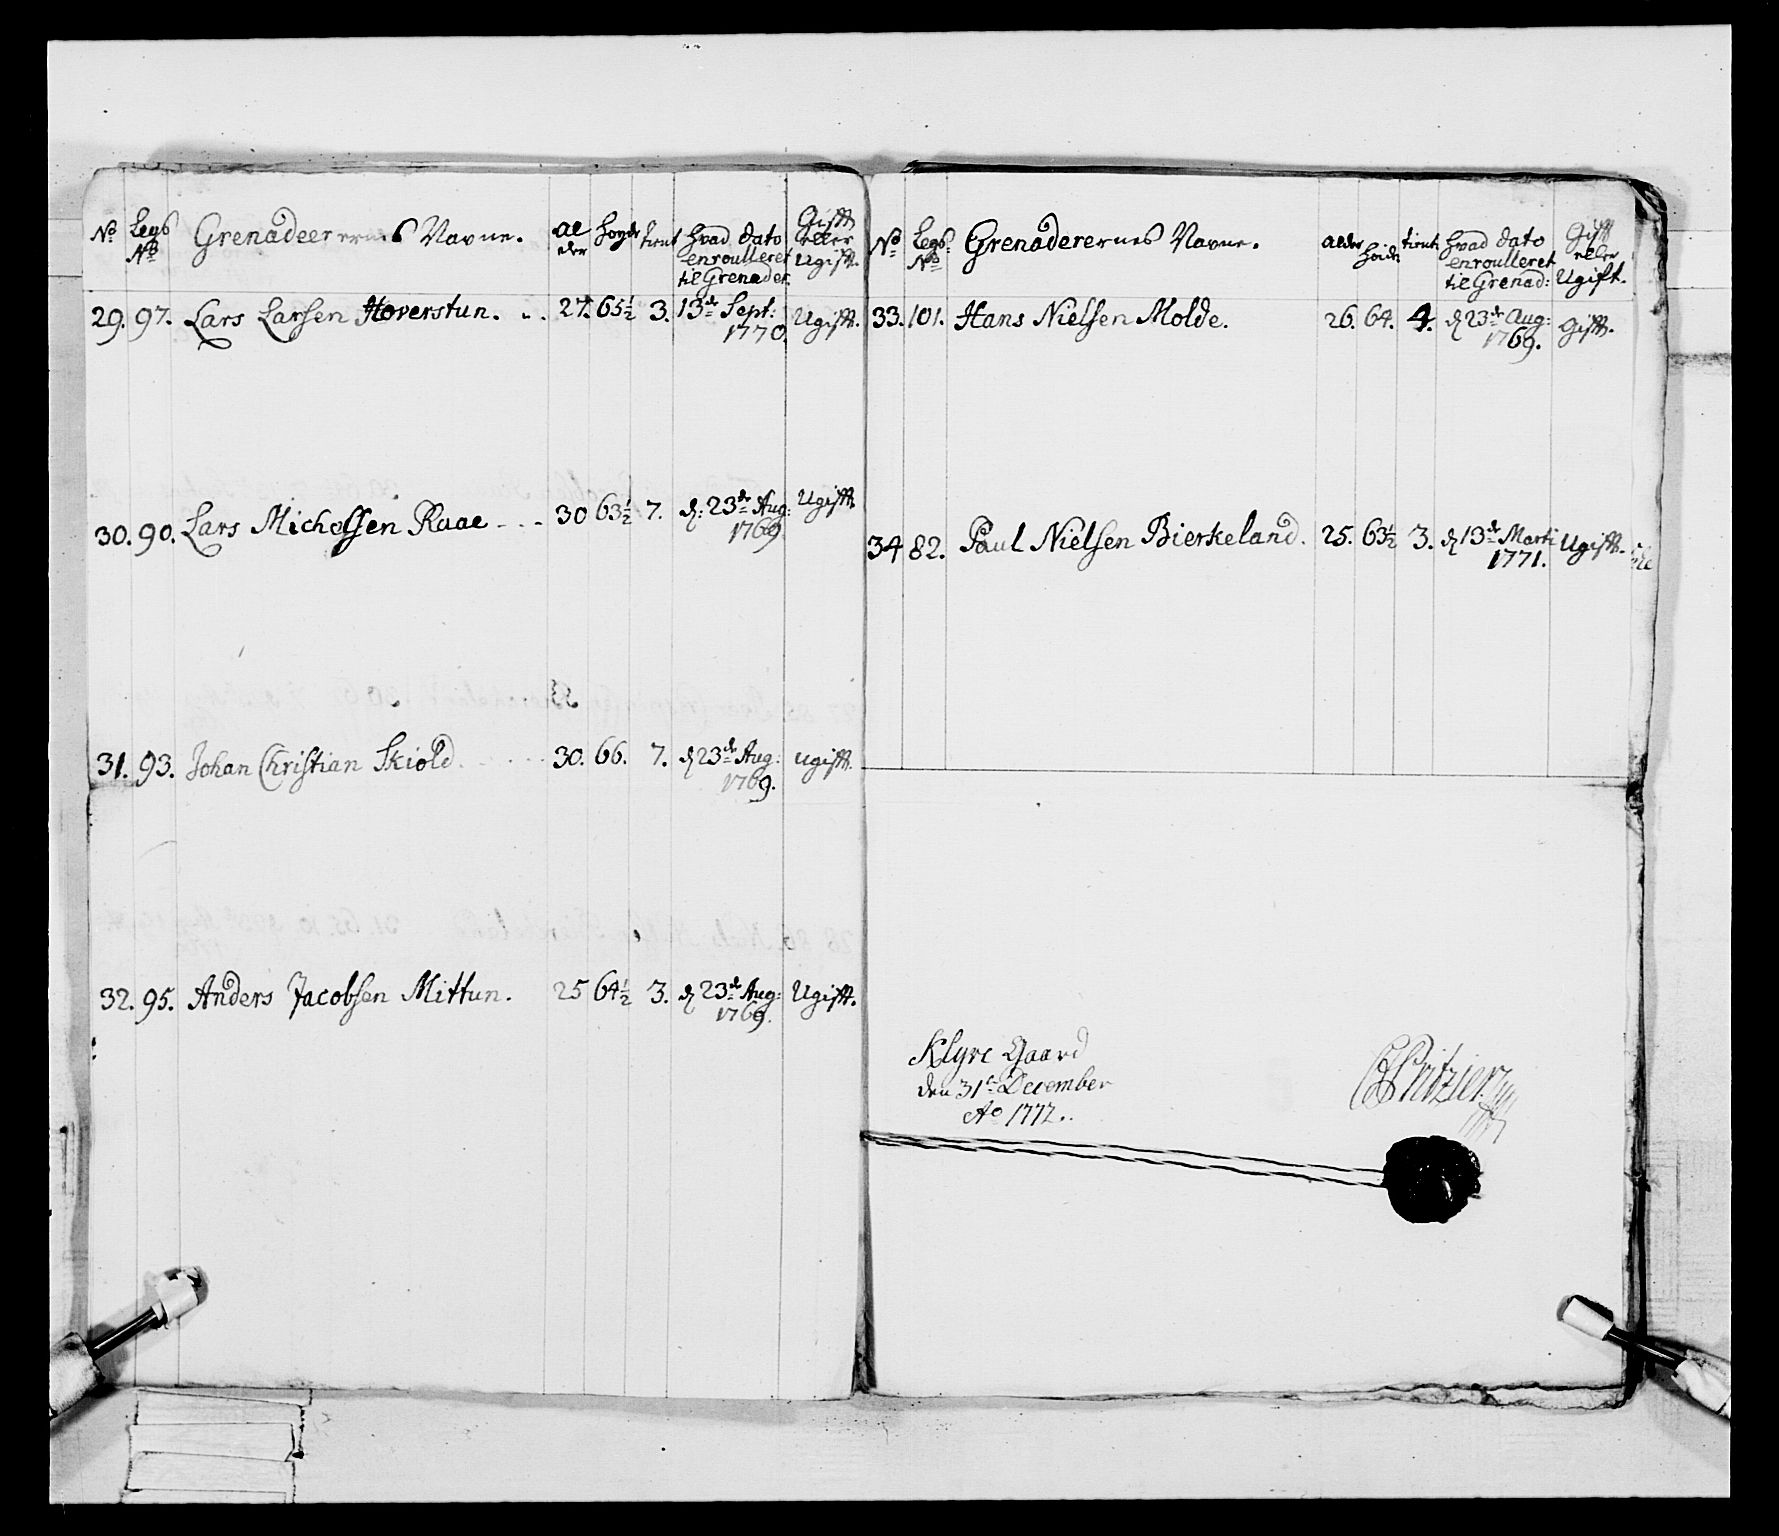 No Legs No Grenadeerernes Navne. Alder høyde tient hvad dato enroulleret til Grenader. Gifft eller Ugifft.
29. 97. Lars Larsen Hoverstun. .. 27. 65½ 3. 13de Sept: 1770. Ugifft.
30. 90. Lars Michelsen Raae - - - 30 63½ 7. d: 23de Aug: 1769. Ugifft.
31. 93. Johan Christian Skiold. - - - 30. 66. 7. d 23de Aug: 1769. ugifft.
32. 95. Anders Jacobsen Mittun. 25 64½ 3. d 23de Aug: 1769. Ugifft.
No Legs No Grenaderernes Navne. Alder høide tient hvad dato enroulleret til Grenad: Gifft eller Ugift.
33. 101. Hans Nielsen Molde. 26. 64. 4. d 23de Aug: 1769. Gifft.
34 82. Paul Nielsen Bierkeland. 25. 63½ 3. d 13de Marti 1771. Ugifft.
Gaard
den 31te December
Ao 1772..